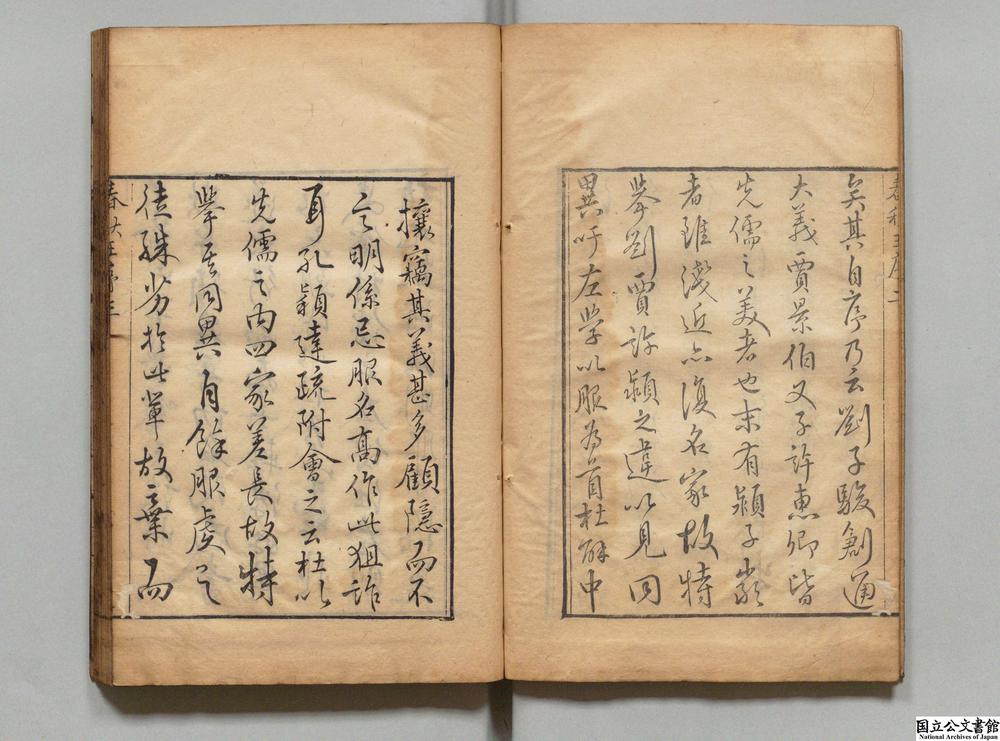 矣其自序乃云劉子駿創通
大義賈景伯父子許惠卿皆
先儒之美者也末有潁子嚴
者雖淺近亦復名家故特
舉劉賈許潁之違以見同
異吁左學以服為首杜解中
攘竊其義甚多顧隱而不
言明係忌服名高作此狙詐
耳孔穎達疏附會之云杜以
先儒之內四家差長故特
舉其同異自餘服虔之
徒殊劣於此輩故棄而
国立公文書館
National Archives of Japan